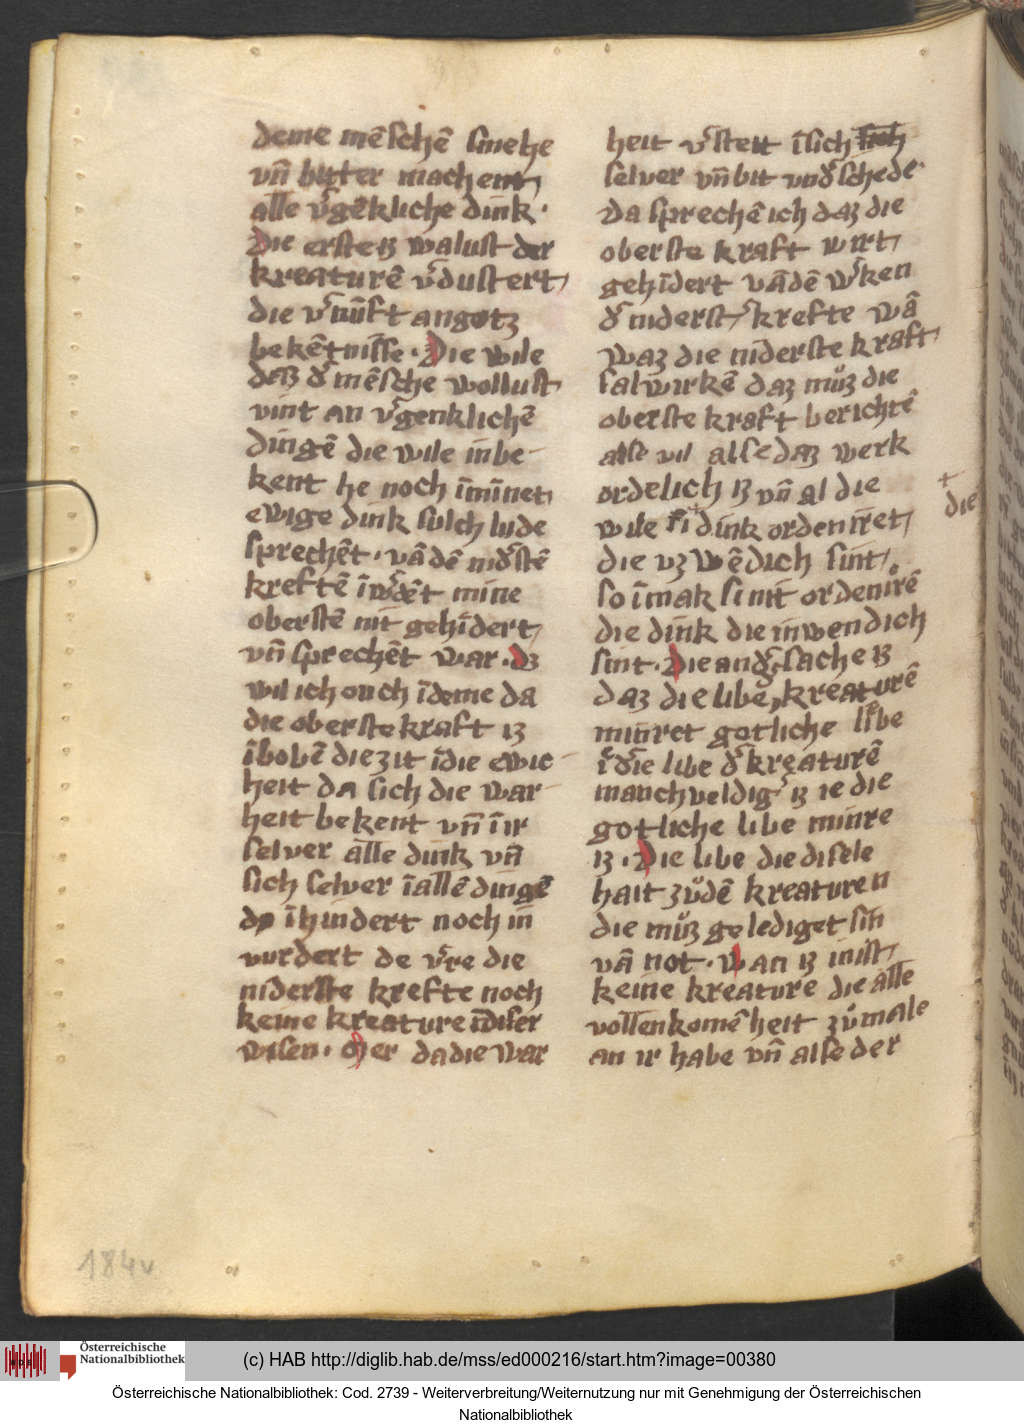 deme mēschē smehe
vn̄ bitter machent,
alle v̉gēkliche dink·
Die erste iz walust der
kreaturē v̉dustert,
die v̉nūft an gotz
bekētnisse· Die wile
daz d̉ mēsche wollust
vint an v̉genklichē
dingē die wile inbe-
kent he noch īminnet,
ewige dink sulch lude
sprechēt· vādē nid̉stē
kreftē īw̉dēt mine
oberstē nit gehīdert,
vn̄ sprechēt war· dz
wil ich ouch īdeme da
die oberste kraft iz
ībobē die zit īdie ewic-
heit da sich die war-
heit bekent vn̄ ī ir
selver alle dink vn̄
sich selver ī allē dingē
do īhindert noch in
vurdert de v̉re die
niderste krefte noch
keine kreature īdiser
wisen· Mer da die war
heit v̉steit īsich sich
selver vn̄bit vnd̉schede·
Da sprechē ich daz die
oberste kraft wirt,
gehīdert vādē w̉ken
d̉ niderst, krefte wā
waz die niderste kraft
sal wirkē daz můz die
oberste kraft berichtē
alse vil alse daz werk
ordelich iz vn̄ al die
wile si dink ordeniret,
+ die
die uzwēdich sint,
so īmak si nit ordenirē
die dink die inwendich
sint· Die and̉ sache iz
daz die libe, kreaturē
minret gotliche libe
v̉d̉ie libe d̉ kreaturē
manchveldig̉ iz ie die
gotliche libe minre
iz· Die libe die di sele
hait zůdē kreaturen
die můz gelediget sin
vā not· wan iz inist,
keine kreature die alle
vollenkomēheit zůmale
an ir habe vn̄ alse der
184v
(c) HAB http://diglib.hab.de/mss/ed000216/start.htm?image=00380
Österreichische
Nationalbibliothek
Österreichische Nationalbibliothek: Cod. 2739 - Weiterverbreitung/Weiternutzung nur mit Genehmigung der Österreichischen
Nationalbibliothek